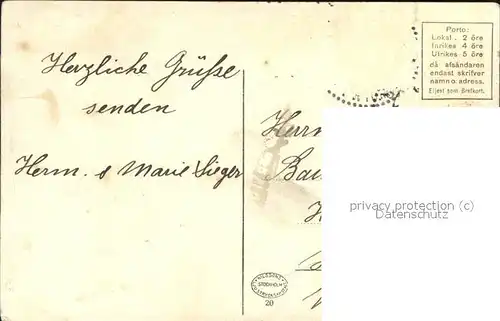 Porto:
Lokal. 2 öre
Inrikes 4 öre
Utrikes 5 öre
då afsändaren
endast skrifver
namn o. adress.
Eljest som brefkort.
Herzliche Grüße
senden
Herm. & Marie Sieger
Herrn
Bau
privacy protection (c)
Datenschutz
STOCKHOLM
20